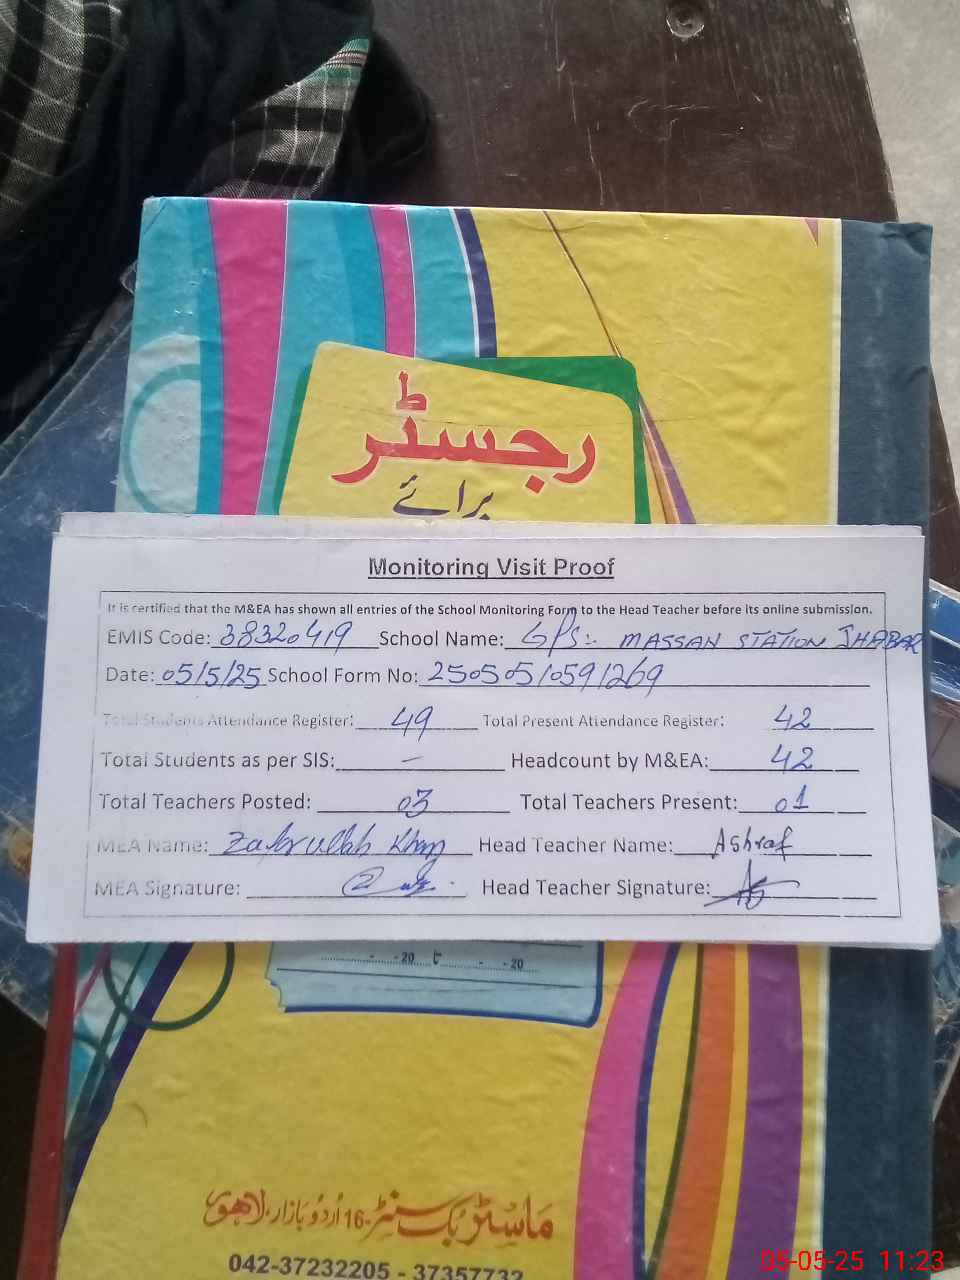 رجسٹر
برائے
Monitoring Visit Proof
It is certified that the M&EA has shown all entries of the School Monitoring Form to the Head Teacher before its online submission.
EMIS Code: 38320419 School Name: GPS:- MASSAN STATION JHABAR
Date: 05/5/25 School Form No: 250505/059/269
Total Students Attendance Register: 49 Total Present Attendance Register: 42
Total Students as per SIS: - Headcount by M&EA: 42
Total Teachers Posted: 03 Total Teachers Present: 01
MEA Name: Zafarullah Khan Head Teacher Name: Ashraf
MEA Signature: Head Teacher Signature:
- -20 تا - -20
ماسٹر بک سنٹر-16 اُردُو بازار، لاہور
042-37232205 - 37357732
05-05-25 11:23